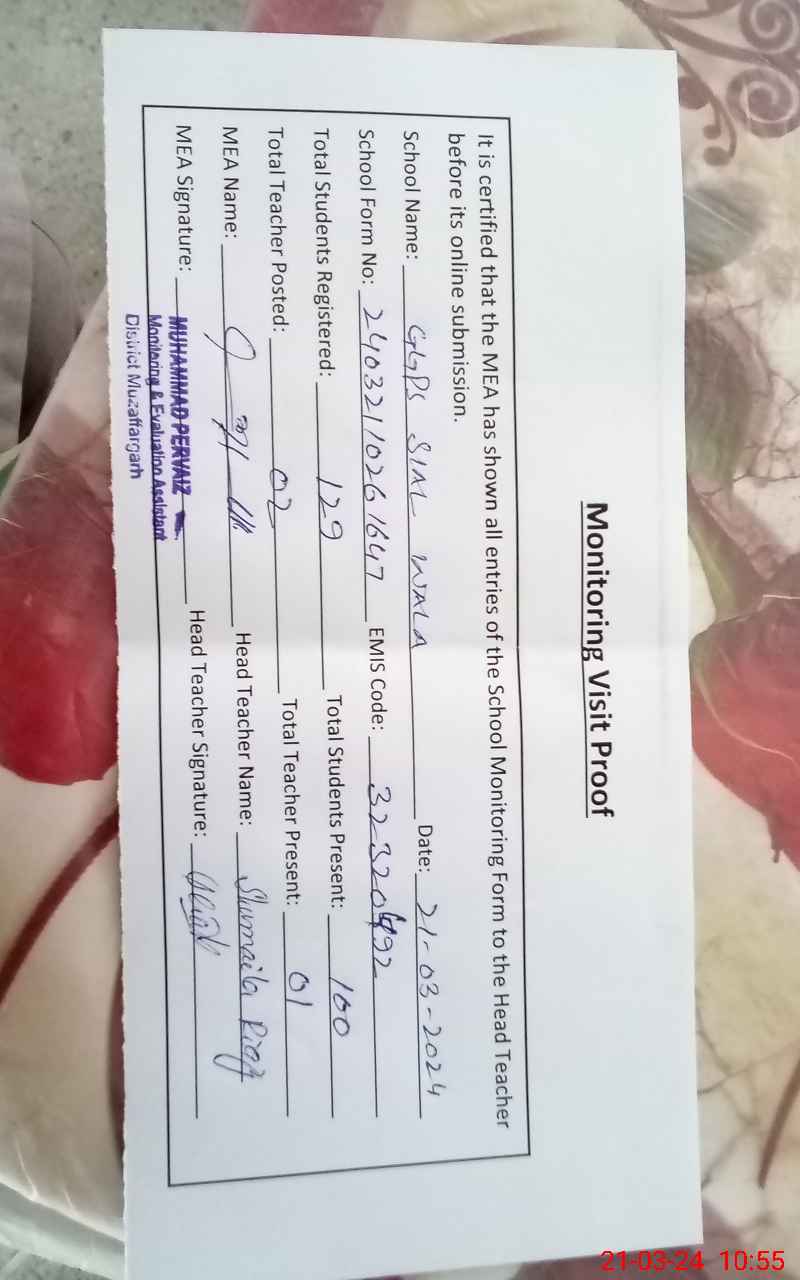 Monitoring Visit Proof
It is certified that the MEA has shown all entries of the School Monitoring Form to the Head Teacher
before its online submission.
School Name: GGPS SIAL WALA Date: 21-03-2024
School Form No: 24032110261647 EMIS Code: 32320492
Total Students Registered: 129 Total Students Present: 100
Total Teacher Posted: 02 Total Teacher Present: 01
MEA Name: Head Teacher Name: Shumaila
MEA Signature: Head Teacher Signature:
MUHAMMAD PERVAIZ
Monitoring & Evaluation Assistant
District Muzaffargarh
21-03-24 10:55